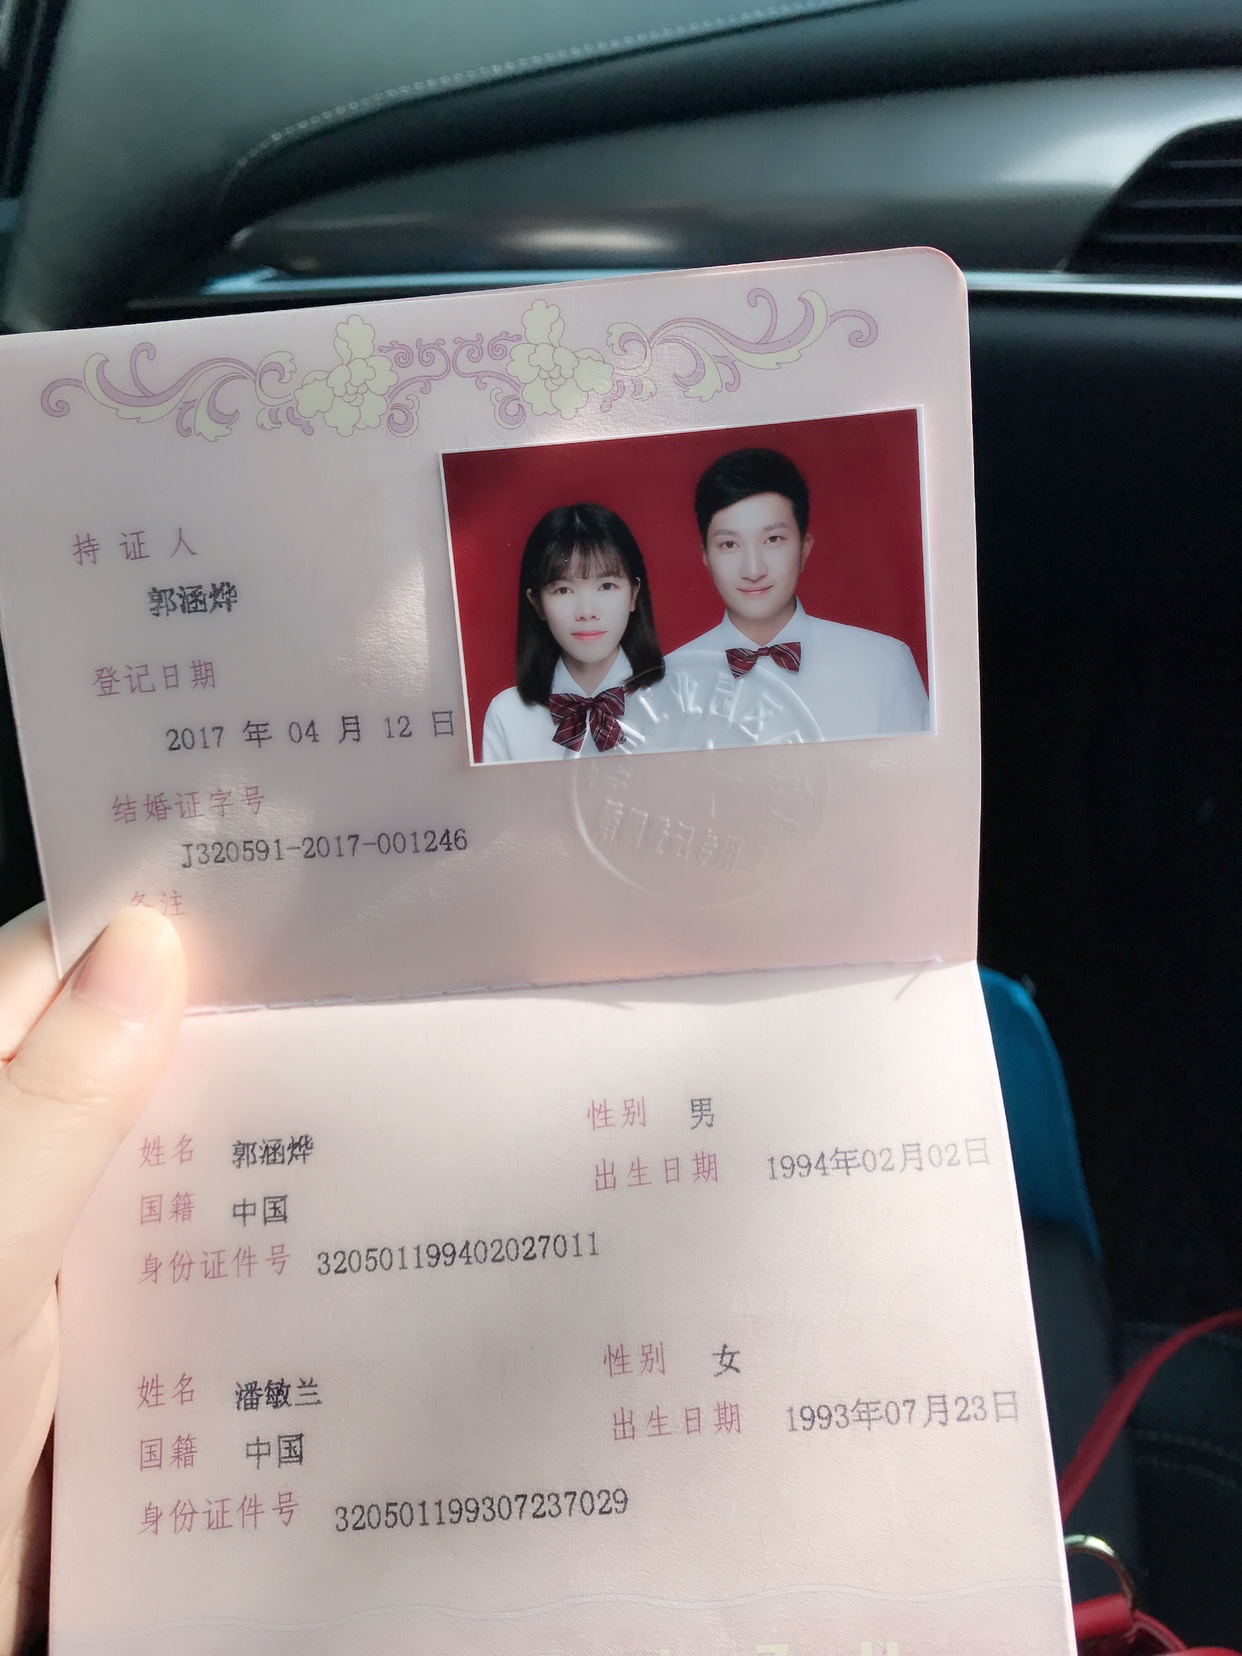 持证人
郭涵烨
登记日期
2017 年 04 月 12 日
结婚证字号
J320591-2017-001246
备注
工业园区
婚姻登记专用
姓名 郭涵烨 性别 男
国籍 中国 出生日期 1994年02月02日
身份证件号 320501199402027011
姓名 潘敏兰 性别 女
国籍 中国 出生日期 1993年07月23日
身份证件号 320501199307237029